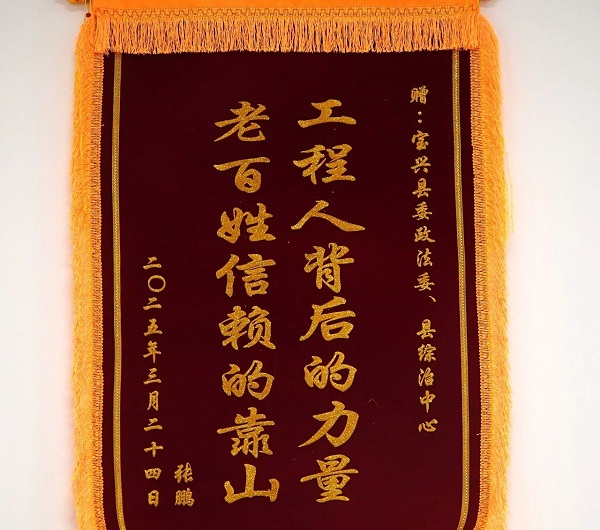 赠：宝兴县委政法委、县综治中心
工程人背后的力量
老百姓信赖的靠山
张鹏
二〇二五年三月二十四日